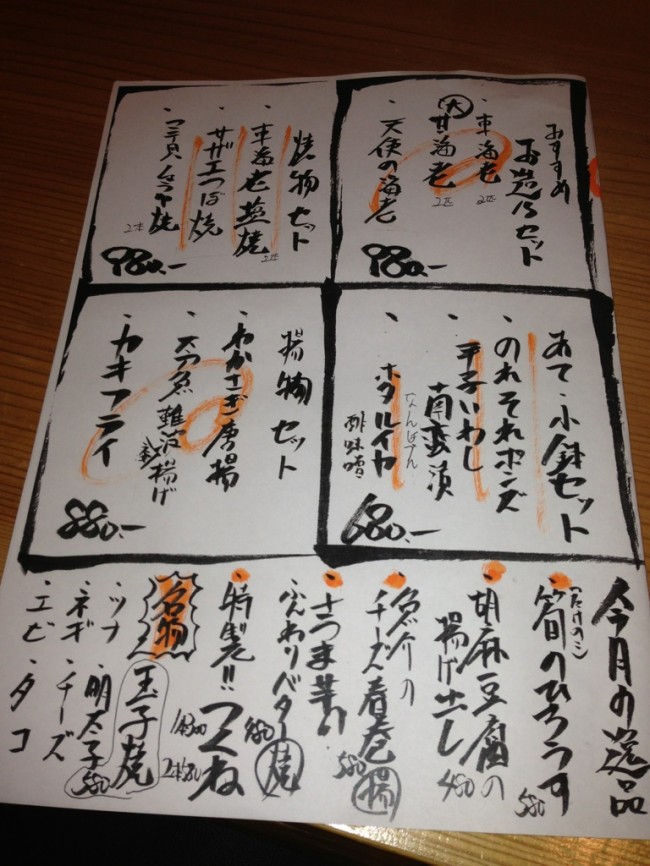 おすすめ
お造りセット
・車海老 2匹
・大甘海老 2匹
・天使の海老
980.-
焼物セット
・車海老蒸焼 2本
・サザエつぼ焼
・つぶ貝 2本
980.-
あて・小鉢セット
・のれそれポンズ
・平子いわし
南蛮漬
なんばん
・ホタルイカ
酢味噌
680.-
揚物セット
・わかさぎ唐揚
・太刀魚難波揚げ
・カキフライ
880.-
今月の逸品
筍のひろうす 580
(たけのこ)
胡麻豆腐の
揚げ出し 480
魚介の
チーズ春巻揚 580
さつま芋の
ふんわりバター焼 480
特製!!
つくね
1本 2本
名物
玉子焼 580
・ツナ・明太子
・ネギ・チーズ
・エビ・タコ